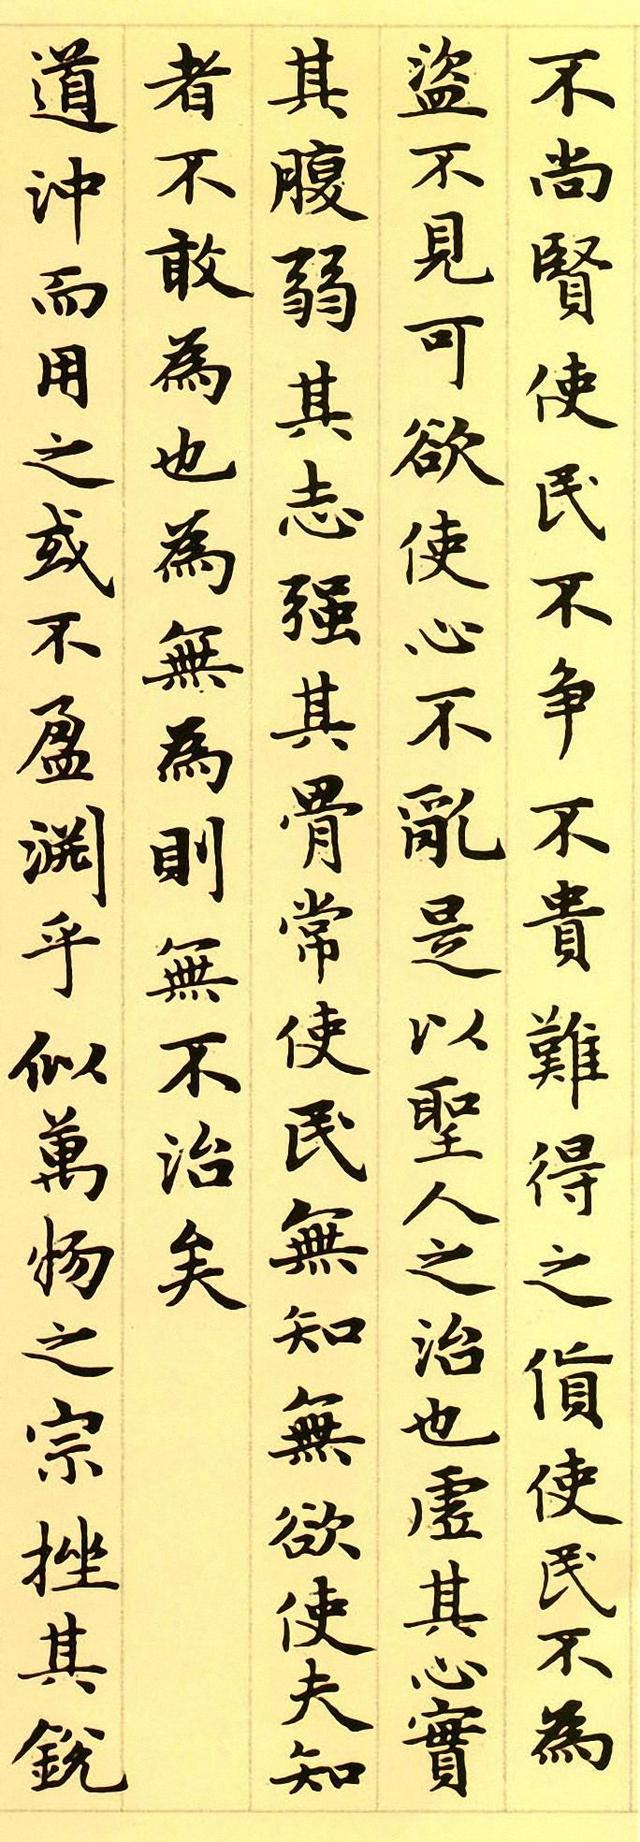 不尚賢使民不争不貴難得之貨使民不為
盜不見可欲使心不亂是以聖人之治也虛其心實
其腹弱其志强其骨常使民無知無欲使夫知
者不敢為也為無為則無不治矣
道沖而用之或不盈淵乎似萬物之宗挫其銳